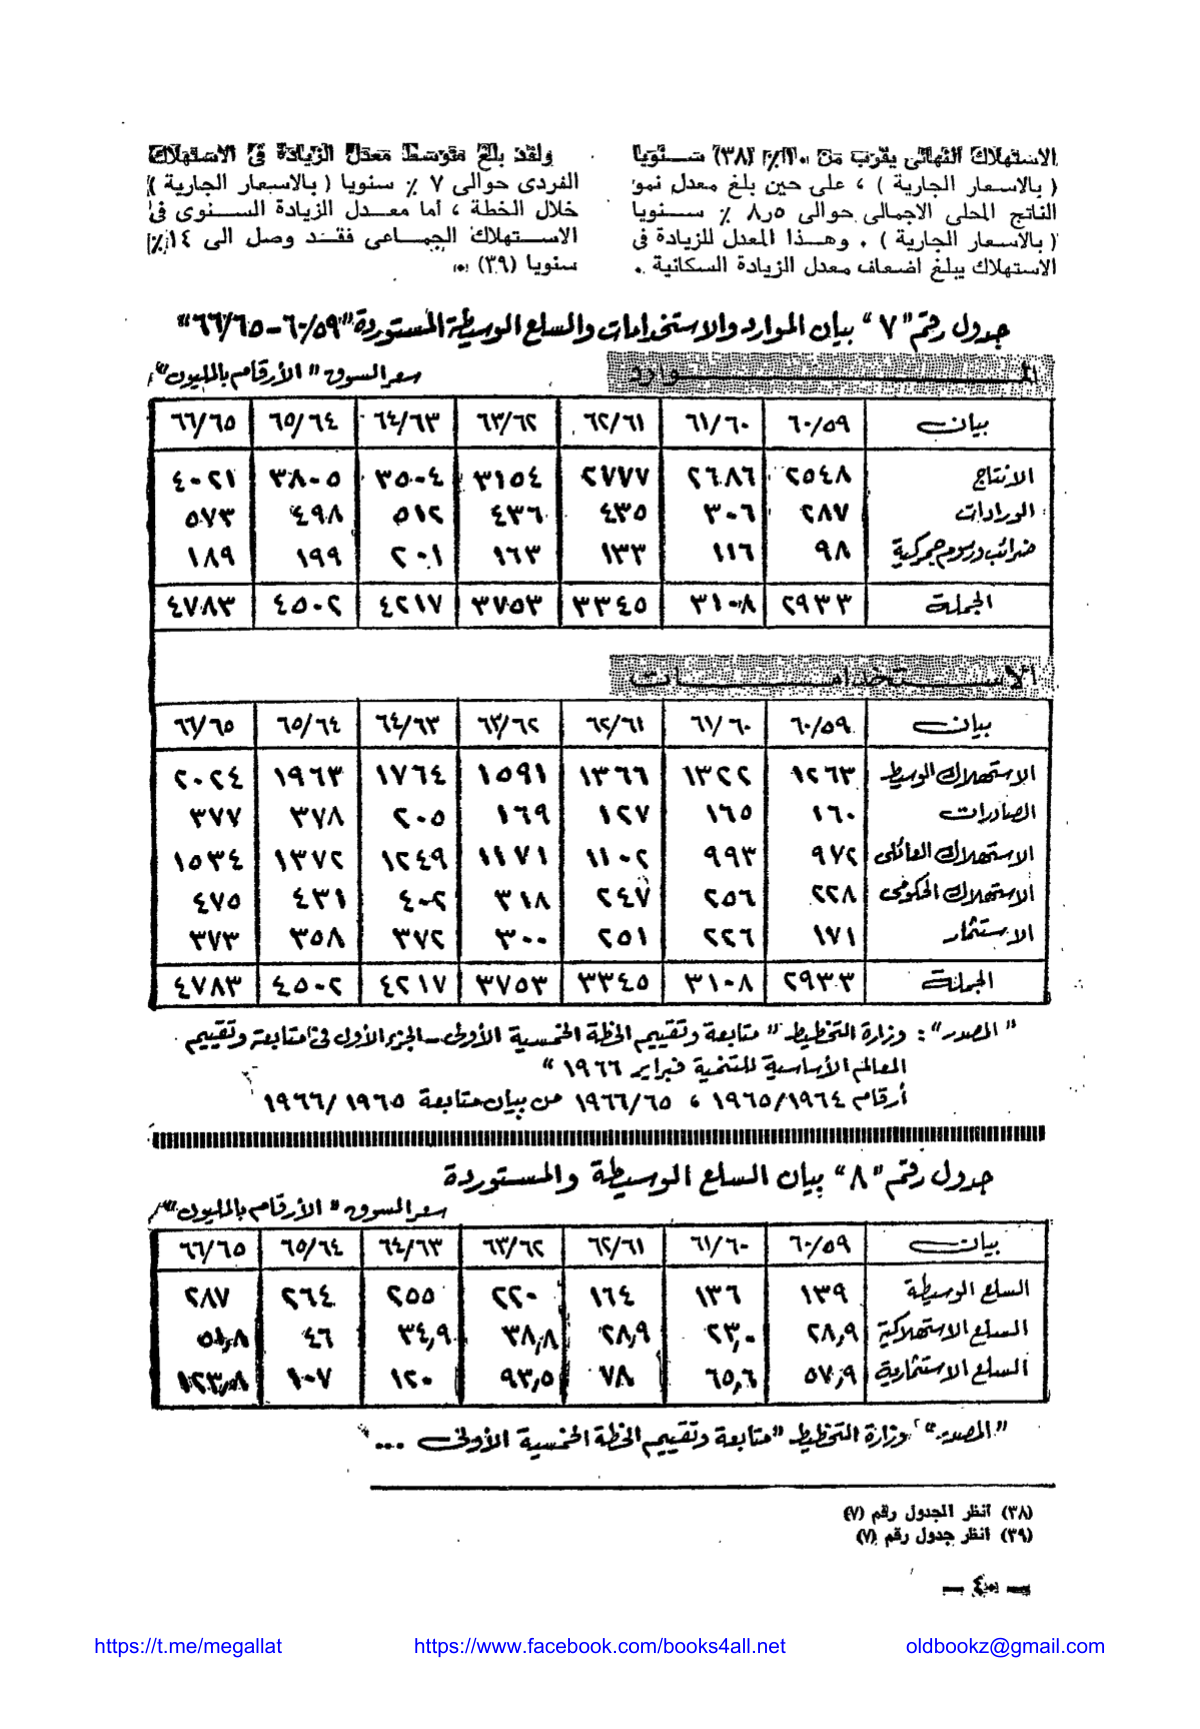 الاستهلاك النهائى يقرب من ١٠٪ (٣٨) سنويا
( بالاسعار الجارية ) ، على حين بلغ معدل نمو
الناتج المحلى الاجمالى حوالى ٨٫٥ ٪ سنويا
( بالاسعار الجارية ) . وهذا المعدل للزيادة فى
الاستهلاك يبلغ اضعاف معدل الزيادة السكانية .
ولقد بلغ متوسط معدل الزيادة فى الاستهلاك
الفردى حوالى ٧ ٪ سنويا ( بالاسعار الجارية )
خلال الخطة ، أما معدل الزيادة السنوى فى
الاستهلاك الجماعى فقد وصل الى ١٤٪
سنويا (٣٩)
جدول رقم "٧" بيان الموارد والاستخدامات والسلع الوسيطة المستوردة "٦٠/٥٩ - ٦٦/٦٥"
الموارد
سعر السوق "الأرقام بالمليون"
بيان ٦٠/٥٩ ٦١/٦٠ ٦٢/٦١ ٦٣/٦٢ ٦٤/٦٣ ٦٥/٦٤ ٦٦/٦٥
الانتاج ٢٥٤٨ ٢٦٨٦ ٢٧٧٧ ٣١٥٤ ٣٥٠٤ ٣٨٠٥ ٤٠٢١
الورادات ٢٨٧ ٣٠٦ ٤٣٥ ٤٣٦ ٥١٢ ٤٩٨ ٥٧٣
ضرائب ورسوم جمركية ٩٨ ١١٦ ١٣٣ ١٦٣ ٢٠١ ١٩٩ ١٨٩
الجملة ٢٩٣٣ ٣١٠٨ ٣٣٤٥ ٣٧٥٣ ٤٢١٧ ٤٥٠٢ ٤٧٨٣
الاستخدامات
بيان ٦٠/٥٩ ٦١/٦٠ ٦٢/٦١ ٦٣/٦٢ ٦٤/٦٣ ٦٥/٦٤ ٦٦/٦٥
الاستهلاك الوسيط ١٢٦٣ ١٣٢٢ ١٣٦٦ ١٥٩١ ١٧٦٤ ١٩٦٣ ٢٠٢٤
الصادرات ١٦٠ ١٦٥ ١٢٧ ١٦٩ ٢٠٥ ٣٧٨ ٣٧٧
الاستهلاك العائلى ٩٧٢ ٩٩٣ ١١٠٢ ١١٧١ ١٢٤٩ ١٣٧٢ ١٥٣٤
الاستهلاك الحكومى ٢٢٨ ٢٥٦ ٢٤٧ ٣١٨ ٤٠٢ ٤٣١ ٤٧٥
الاستثمار ١٧١ ٢٢٦ ٢٥١ ٣٠٠ ٣٧٢ ٣٥٨ ٣٧٣
الجملة ٢٩٣٣ ٣١٠٨ ٣٣٤٥ ٣٧٥٣ ٤٢١٧ ٤٥٠٢ ٤٧٨٣
"المصدر": وزارة التخطيط "متابعة وتقييم الخطة الخمسية الأولى - الجزء الأول فى متابعة وتقييم
المعالم الأساسية للتنمية فبراير ١٩٦٦"
أرقام ١٩٦٥/١٩٦٤ ، ١٩٦٦/٦٥ من بيان متابعة ١٩٦٦/١٩٦٥
جدول رقم "٨" بيان السلع الوسيطة والمستوردة
سعر السوق "الأرقام بالمليون"
بيان ٦٠/٥٩ ٦١/٦٠ ٦٢/٦١ ٦٣/٦٢ ٦٤/٦٣ ٦٥/٦٤ ٦٦/٦٥
السلع الوسيطة ١٣٩ ١٣٦ ١٦٤ ٢٢٠ ٢٥٥ ٢٦٤ ٢٨٧
السلع الاستهلاكية ٢٨,٩ ٢٣,٠ ٢٨,٩ ٣٨,٨ ٣٤,٩ ٤٦ ٥١,٨
السلع الاستثمارية ٥٧,٩ ٦٥,٦ ٧٨ ٩٣,٥ ١٢٠ ١٠٧ ١٢٣,٨
"المصدر" وزارة التخطيط "متابعة وتقييم الخطة الخمسية الأولى ..."
(٣٨) انظر الجدول رقم (٧)
(٣٩) انظر جدول رقم (٧)
https://t.me/megallat https://www.facebook.com/books4all.net oldbookz@gmail.com